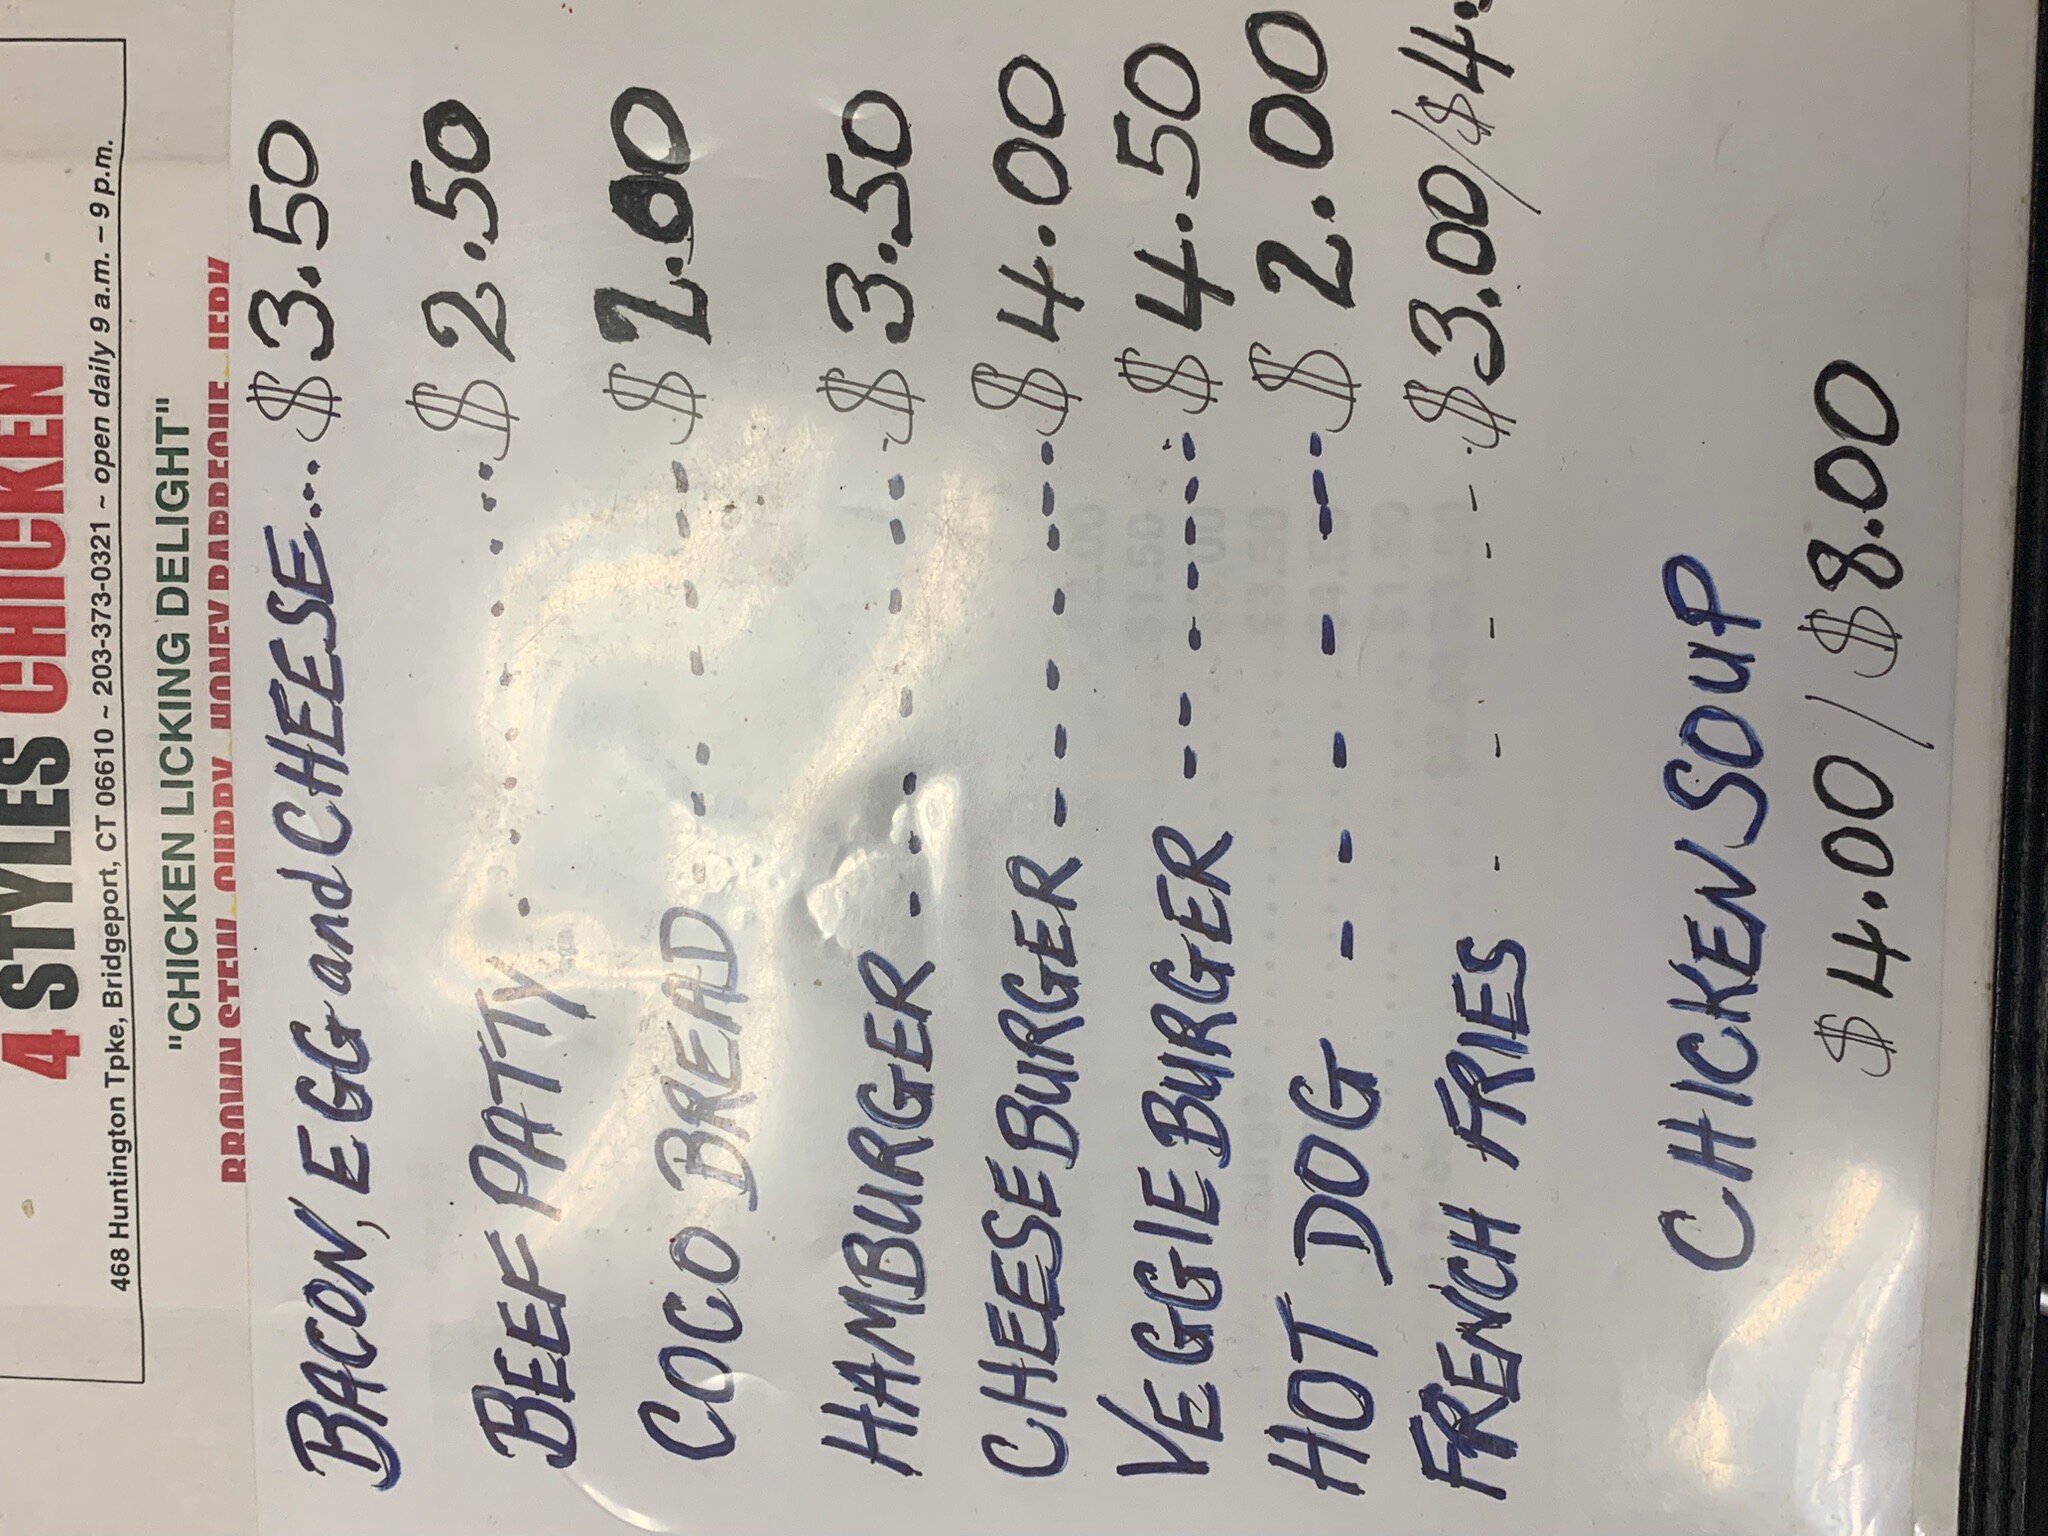 4 STYLES CHICKEN
468 Huntington Tpke, Bridgeport, CT 06610 ~ 203-373-0321 ~ open daily 9 a.m. – 9 p.m.
"CHICKEN LICKING DELIGHT"
BROWN STEW CURRY HONEY BARBECUE JERK
BACON, EGG and CHEESE... $3.50
BEEF PATTY ........ $2.50
COCO BREAD ....... $2.00
HAMBURGER ------- $3.50
CHEESEBURGER -------- $4.00
VEGGIE BURGER -------- $4.50
HOT DOG ------- $2.00
FRENCH FRIES ------- $3.00/$4.
CHICKEN SOUP
$4.00/$8.00